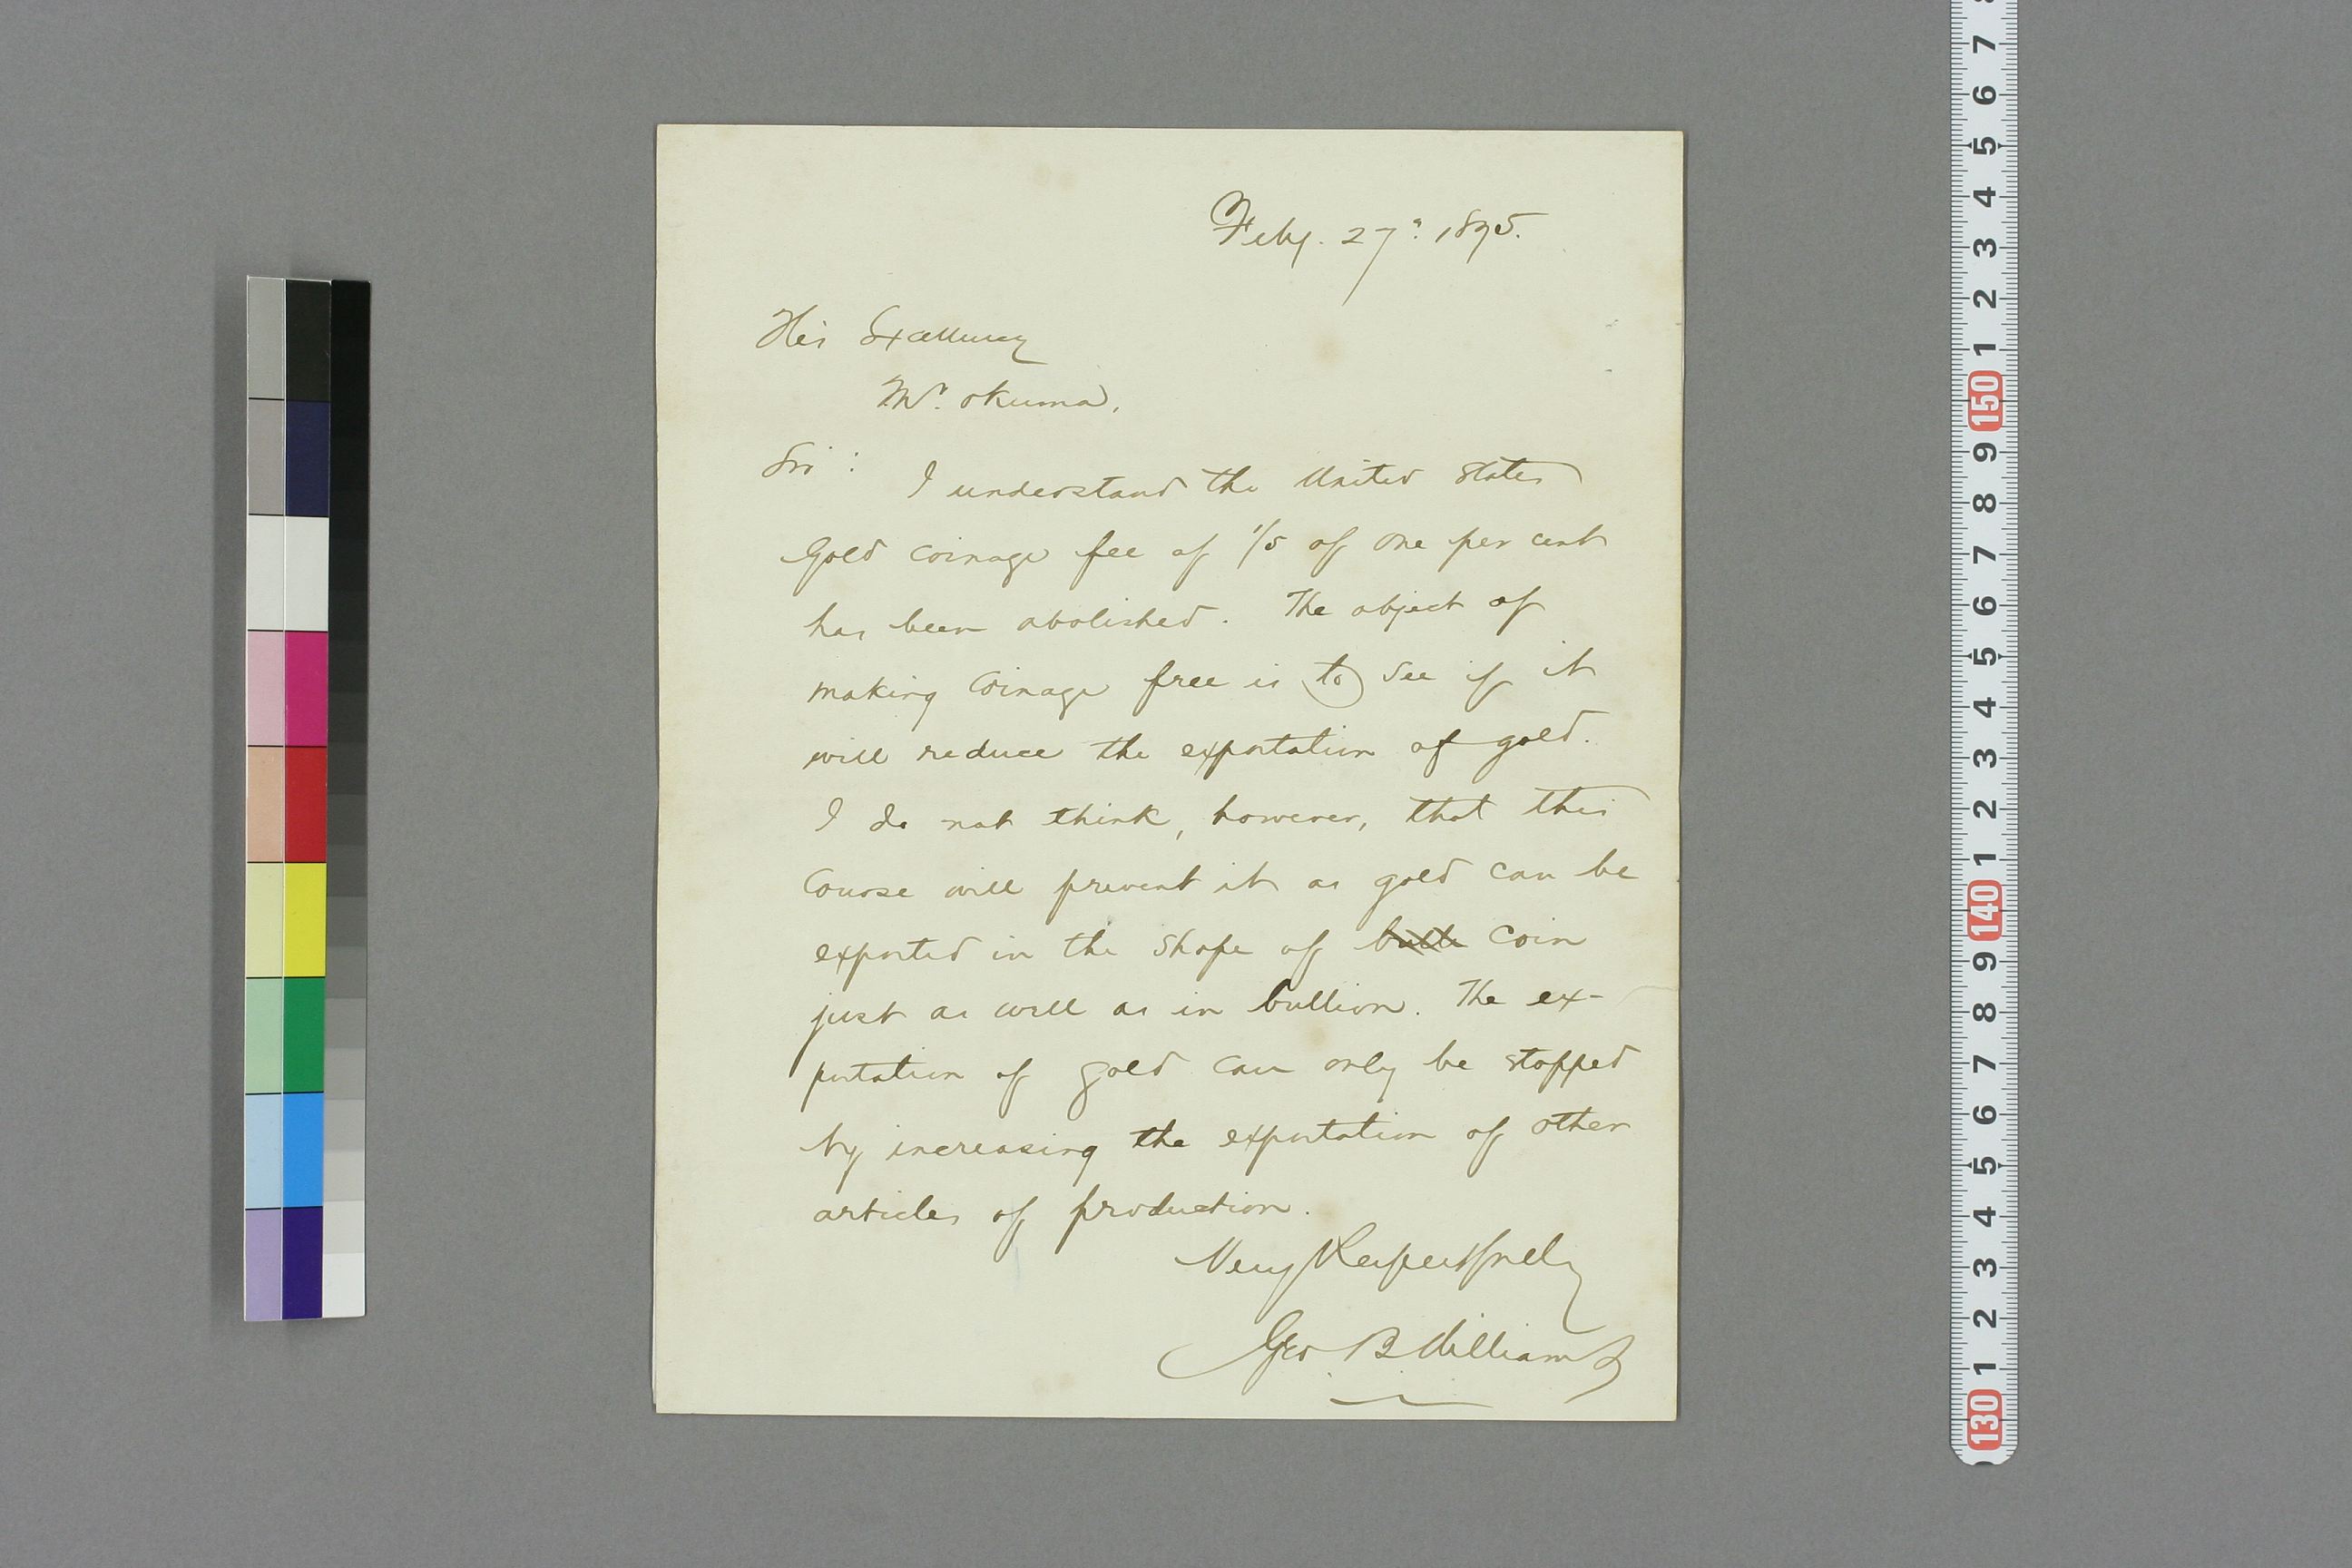 Feby. 27th 1875.
His Excellency
Mr. Okuma,
Sir :
I understand the United States
Gold coinage fee of 1/5 of one per cent
has been abolished. The object of
making coinage free is to see if it
will reduce the exportation of gold.
I do not think, however, that this
Course will prevent it as gold can be
exported in the shape of coin
just as well as in bullion. The ex-
portation of gold can only be stopped
by increasing the exportation of other
articles of production.
Very Respectfully
Geo B Williams
7
6
5
4
3
2
1
150
9
8
7
6
5
4
3
2
1
140
9
8
7
6
5
4
3
2
1
130